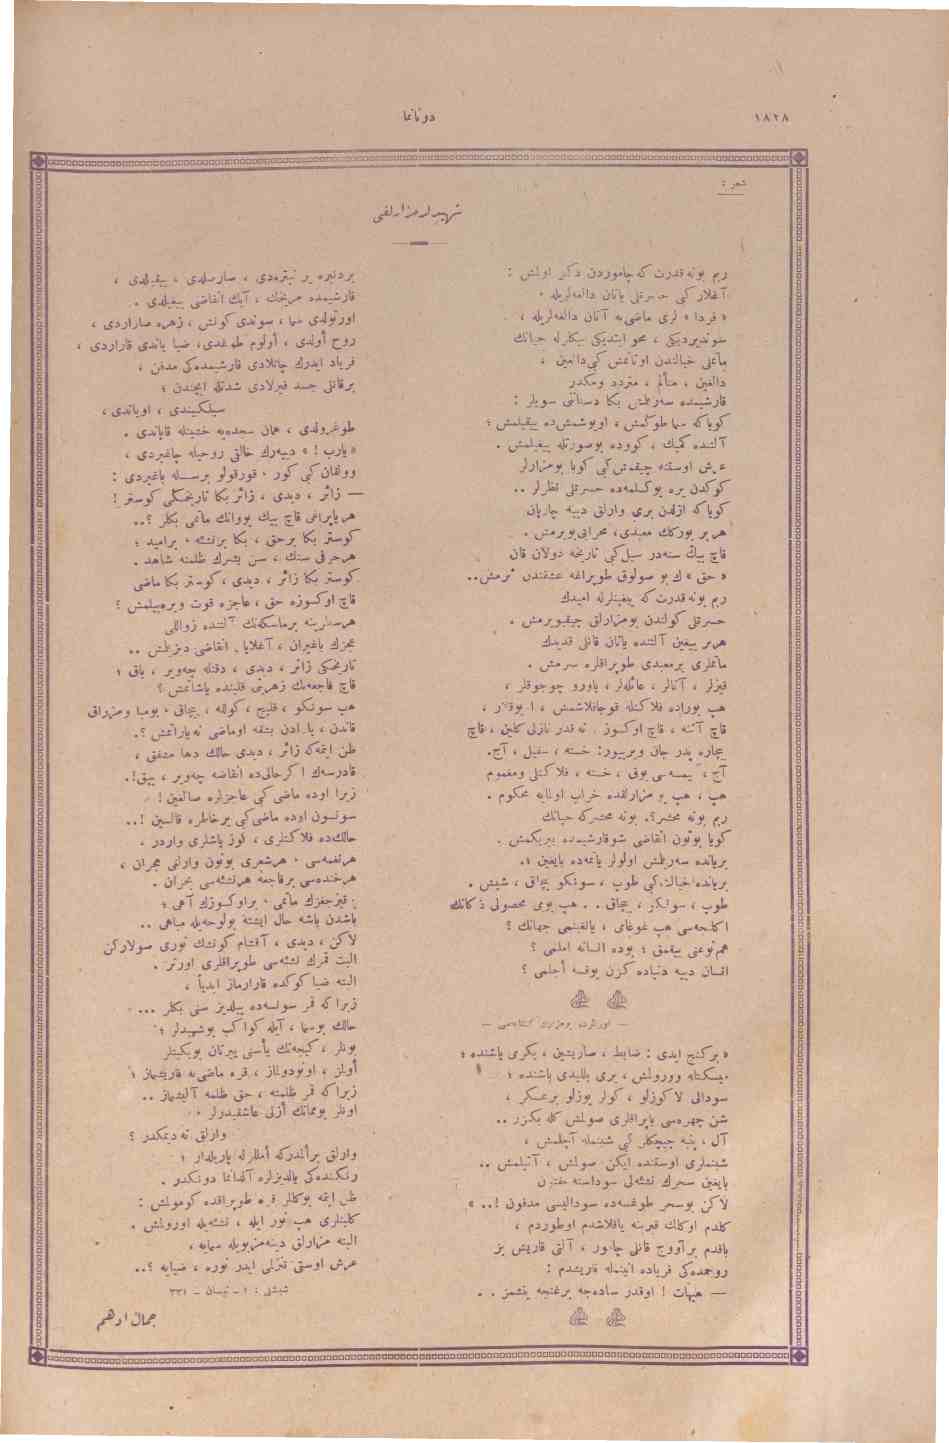 ١٨٢٨
دوناما
شعر :
شهيدلر مزارلغى
ربم بونه قدرت كه چاموردن دكز اولمش :
آغلار كبى حسرتلى ياتان دالغه لريله .
« فردا » لرى ماضى يه آتان دالغه لريله ،
سوندیردیكى ، محو ایتدیكى بیكلرله حیاتك
ماتملى خيالندن اوتانمش كبى دالغین ،
دالغین ، متألم ، متردد ومكدر
قارشیمده سه ریلمش بكا دستانى سویلر :
كویا كه سما طوكمش ، اوبوشمش ده ییقیلمش ؛
آلتنده كمیك ، كووده بوصورتله ییغیلمش .
عرش اوستنه چیقمش كبى كویا بومزارلر
كوكدن یره یوكسلمه ده حسرتلى نظرلر ..
كویا كه ازلدن برى وارلق دییه چارپان
هر بر یورك معبدى، محرابى بویرمش .
قاچ بیك سنه در سیل كبى تاریخه دولان قان
« حق » ك بو صولوق طوپراغه عشقندن یرمش..
ربم بونه قدرت كه ییغینلرله امیدك
حسرتلى كولندن بومزارلق چیقیویرمش .
هر بر ییغین آلتنده یاتان قانلى قدیدك
ماتملرى بر معبدى طوپراقلره سرمش .
قیزلر ، آنالر ، عائله لر ، یاورو چوجوقلر ،
هپ بوراده فلاكتله قوجاقلاشمش ، ا بوقلار ،
قاچ آننه ، قاچ اوكسوز . نه قدر نازلى كلین ، قاچ
بیچاره پدر جان ویرییور: خسته ، سفیل ، آج.
آج ، كیمسه سى یوق ، خسته ، فلاكتلى ومغموم
هپ ، هپ بو مزارلقده خراب اولمایه محكوم .
ربم بونه محشر؟. بونه محشر كه حیاتك
كویا بوتون انقاضى شو قارشیمده بیریكمش .
بر یانده سه ریلمش اولولر یاتمه ده بایغین ؛.
بر یانده خیالت كبى طوپ ، سونكو بیچاق ، شیش .
طوپ ، سونكو ، بیچاق . . هپ بومى محصولى ذكانك
اكلنجه سى هپ غوغامى ، یالغینمى جهانك ؟
هم نوعنى ییقمق ؛ بوده انسانه املمى ؟
انسان دییه دنیاده كزن یوقسه أجلمى ؟
« بر كنج ایدى : ضابط ، صاریشین ، یكرمى یاشنده ؛
سودالى لا كوزلو ، كولر یوزلو بر عسكر ،
شن چهره سى یاپراقلرى صولمش كله بكزر ..
آل ، پنبه چیچكلر كبى شبنمله آچیلمش ،
شبنملرى اوستنده ایكن صولمش ، آتیلمش ..
بایغین سحرك نشئه لى سوداسنه مفتون
لاكن بوسحر طوغمه ده سودالیسى مدفون !.. »
كلدم اوكاك قبرینه یاقلاشدم اوطوردم ،
باقدم بر آووج قانلى چامور ، آلتى قاریش بز
روحمده كى فریاده انینمله قاریشدم :
— هیهات ! اوقدر ساده جه بر غنجه یتشمز . .
بردنبره یر تیتره دى ، صارصلدى ، ییقیلدى ،
قارشیمده مریخك ، آیك انقاضى ییغیلدى .
اورتولدى سما ، سوندى كونش ، زهره صاراردى ،
روح أولدى ، أولوم طوغدى، ضیا یاندى قاراردى ،
فریاد ایدرك چاتلادى قارشیمده كى مدفن ،
بر قانلى جسد فیرلادى شدتله ایچندن ؛
سیلكیندى ، اویاندى ،
طوغرولدى ، همان سجده یه خشیتله قاپاندى .
« یارب ! » دییه رك خالق روحیله چاغیردى ،
وولقان كبى كور . قورقولو بر سسله باغیردى :
— زائر ، دیدى ، زائر بكا تاریخكمى كوستر !
هر یاپراغى قاچ بیك یووانك ماتمى بكلر ؟..
كوستر بكا بر حق ، بكا بر نشئه . بر امید ؛
هر حرفى سنك ، سن بشرك ظلمنه شاهد .
كوستر بكا زائر ، دیدى ، كوستر بكا ماضى
قاچ اوكسوزه حق ، عاجزه قوت ویره بیلمش ؟
هر سطرینه بر ماسكه نك آلتنده زواللى
عجزك باغیران ، آغلایان انقاضى دیزیلمش ..
تاریخكى زائر ، دیدى ، دقتله چه ویر ، باق ؛
قاچ فاجعه نك زهرینى قلبنده یاشاتمش ؟
هپ سونكو ، قلیچ ، كولله ، بیچاق . بومبا ومزراق
قاندن ، یارادن بشقه اوماضى نه یاراتمش ؟.
ظن ایتمه كه زائر ، دیدى حالك دها مشفق ،
قادرسه ك اكر حالى ده انقاضه چه ویر ، ییق!.
زیرا اوده ماضى كبى عاجزلره صالغین !
سونسون اوده ماضى كبى بر خاطره قالسین !..
حالك ده فلاكتلرى ، قوز یاشلرى واردر ،
هر نغمه سى . هر شعرى بوتون وارلغى هجران ،
هر خنده سى بر فاجعه هر نشئه سى بحران .
بر قیزجغزك ماتمى . بر اوكسوزك آهى ؛
باشدن باشه حال ایشته بولوحه یله مباهى ..
لاكن ، دیدى ، آقشام كونشك نورى صولاركن
البت قمرك نشئه سى طوپراقلرى اورتر .
البته ضیا كوكده قارارماز ابدیأ ،
زیرا كه قمر سونسه ده ییلدیز سنى بكلر ...
حالك بوسما ، آیله كواكب بوشهیدلر ؛
بونلر ، كیجه نك یأسنى ییرتان بوییكیتلر
أولمز ، اونودولماز ، قره ماضى یه قاریشماز ؛
زیرا كه قمر ظلمته ، حق ظلمه آلیشماز ..
اونلر بومماتك أزلى عاشقیدرلر .
وارلق نه دیمكدر ؟
وارلق بر ألمدر كه أمللرله پاریلدار ؛
رنكنده كى یالدیزلره آلدانما دونكدر .
ظن ایتمه بوكللر قره طوپراقده كومولمش :
كللینلرى هپ نور ایله ، نشئه یله اورولمش .
البته مزارلق دینه مز بویله سمایه ،
عرش اوستى تنزلمى ایدر نوره ، ضیایه ؟..
شیشلى : ١ - نیسان - ٣٣١
جمال ادهم